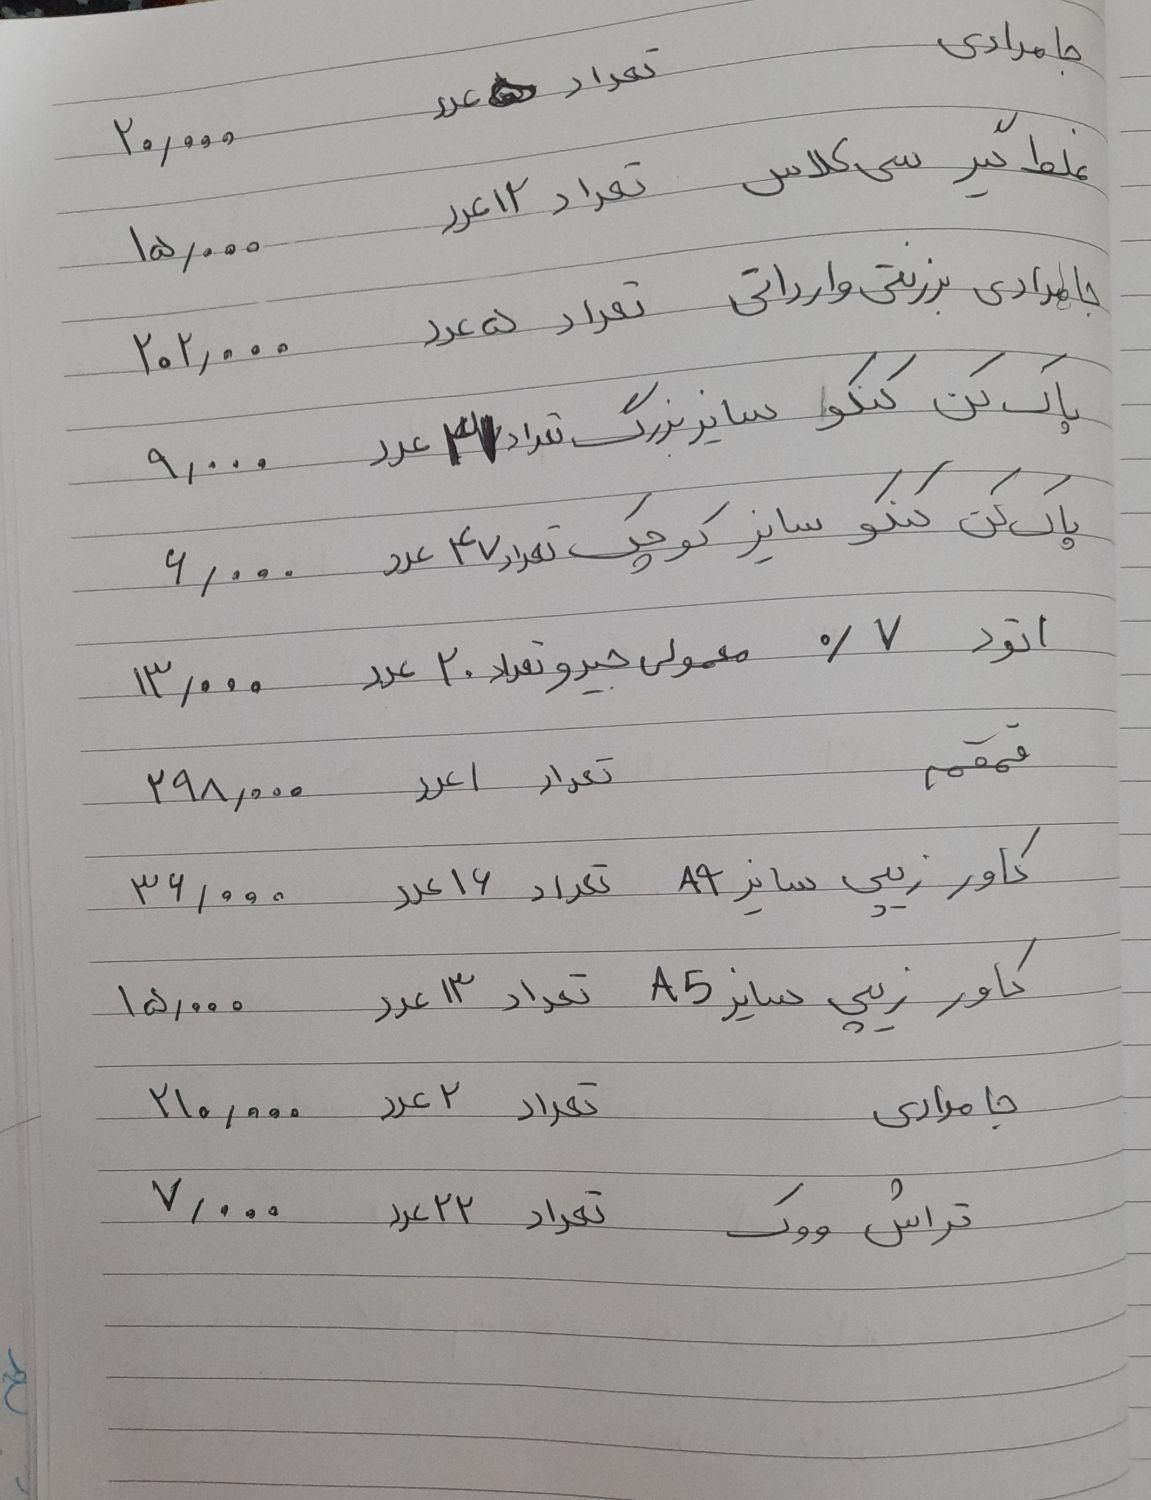 جامدادی تعداد عدد ۲۰٫۰۰۰
غلط گیر سی کلاس تعداد ۱۲ عدد ۱۵٫۰۰۰
جامدادی بزرنتی وارداتی تعداد ۵ عدد ۲۰۲٫۰۰۰
پاک کن کنکو سایز بزرگ تعداد عدد ۹٫۰۰۰
پاک کن کنکو سایز کوچک تعداد ۴۷ عدد ۶٫۰۰۰
اتود ۰/۷ معمولی جیرو تعداد ۲۰ عدد ۱۳٫۰۰۰
قمقمه تعداد ۱ عدد ۲۹۸٫۰۰۰
کاور زیپی سایز A4 تعداد ۱۶ عدد ۳۶٫۰۰۰
کاور زیپی سایز A5 تعداد ۱۳ عدد ۱۵٫۰۰۰
جامدادی تعداد ۲ عدد ۲۱۰٫۰۰۰
تراش ووک تعداد ۲۲ عدد ۷٫۰۰۰